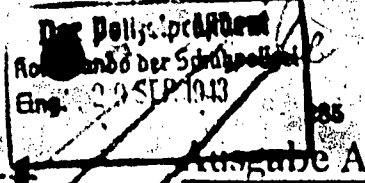 Der Polizeipräsident
Kommando der Schutzpolizei
Eing. 20 SEP. 1943
85
Ausgabe A